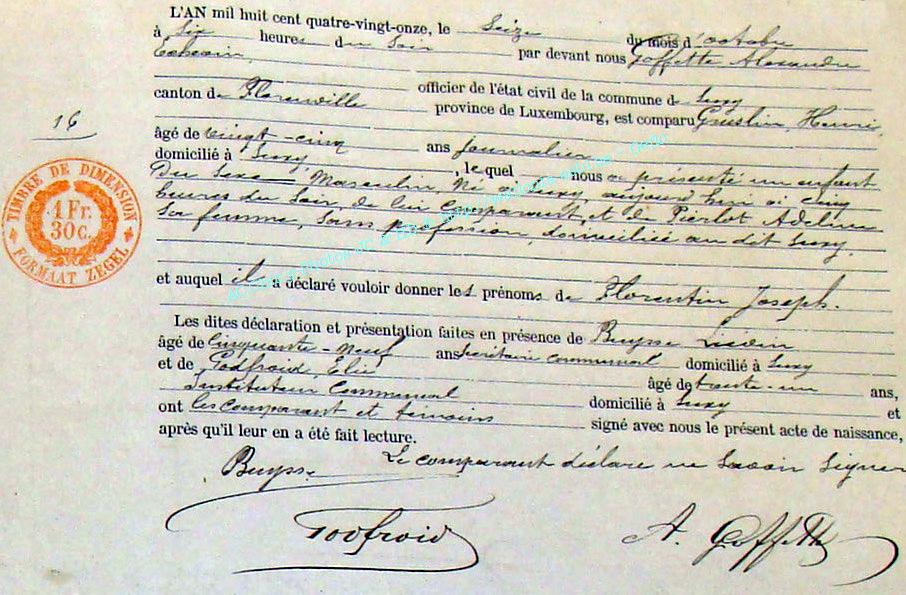 L'AN mil huit cent quatre-vingt-onze, le Seize du mois d'octobre
à Six heures du Soir par devant nous Goffette Alexandre
Echevin,
officier de l'état civil de la commune de Suxy
canton de Florenville province de Luxembourg, est comparu Henri,
16
âgé de vingt-cinq ans journalier
domicilié à Suxy, lequel nous a présenté un enfant
Du Sexe Masculin, Né à Suxy, aujourd'hui à cinq
heures du Soir, de lui comparant, et de Pierlot Adeline
Sa femme, Sans profession, domiciliée au dit Suxy.
TIMBRE DE DIMENSION
1 Fr.
30c.
FORMAAT ZEGEL
et auquel il a déclaré vouloir donner les prénoms de Florentin Joseph.
Les dites déclaration et présentation faites en présence de Buysse
âgé de Cinquante-neuf ans Secrétaire communal domicilié à Suxy
et de Godfroid, Elie âgé de trente-un ans,
Instituteur Communal domicilié à Suxy et
ont les comparant et témoins signé avec nous le présent acte de naissance,
après qu'il leur en a été fait lecture.
Le comparant déclare ne Savoir Signer
Buysse
Godfroid
A. Goffette